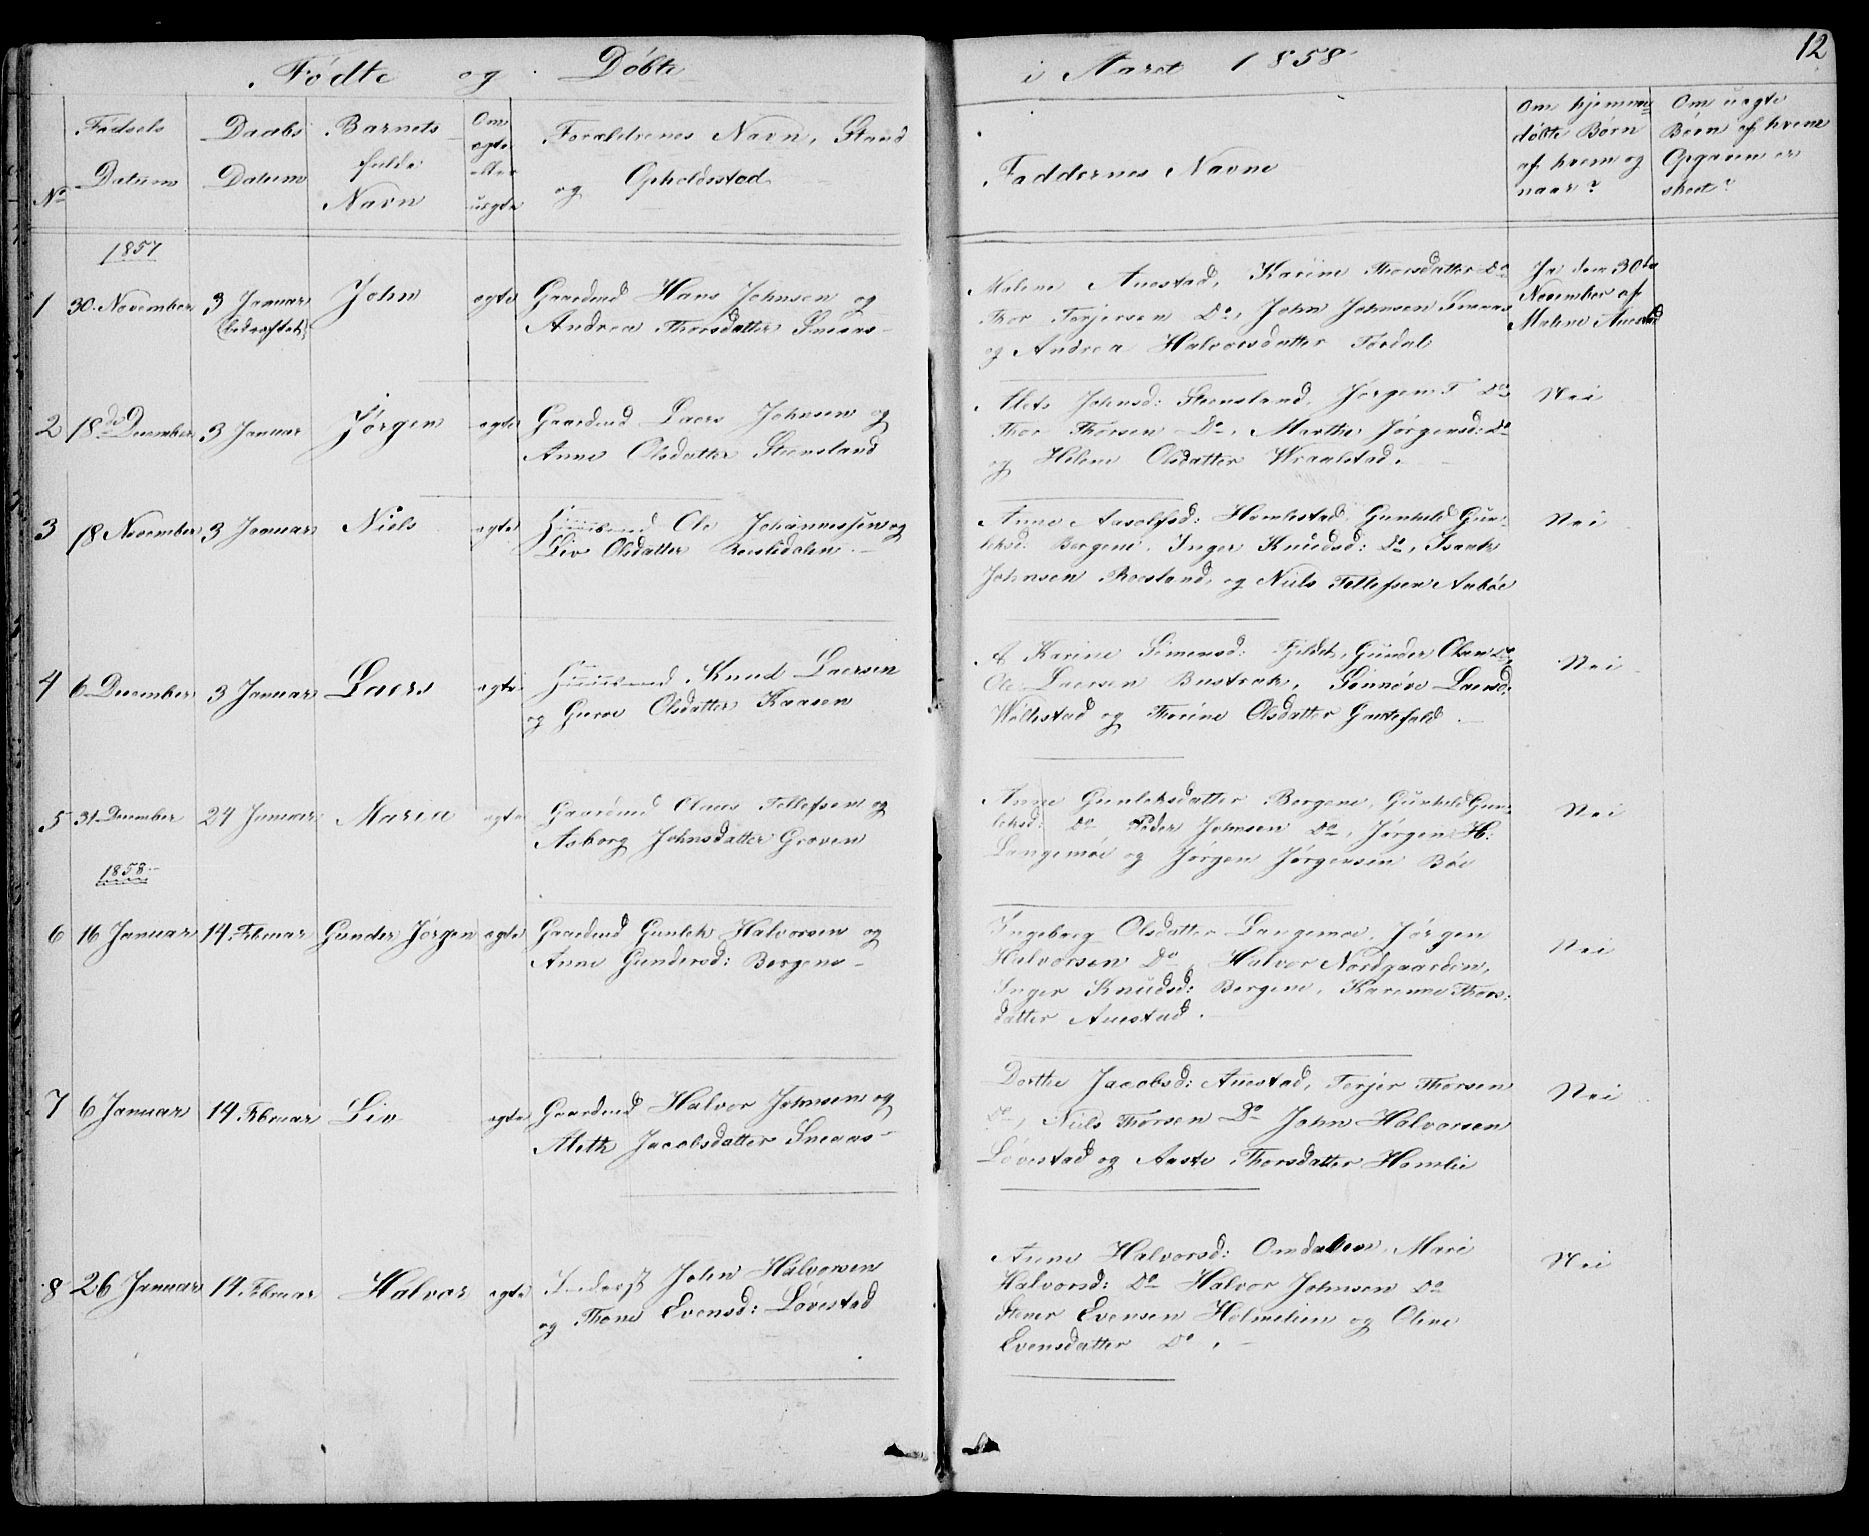 Fødte og Døbte i Aaret 1858
12
No
Fødsels Datum
Daabs Datum
Barnets fulde Navn
Om ægte eller uægte
Forældrenes Navn, Stand
og Opholdsstad
Faddernes Navne
Om hjemme
døbte Børn
af hvem og
naar?
Om uægte
Børn af hvem
Opgaven er
skeet?
1857
1 30. November 3 Januar (bekræftet) John ægte
Gaardmd Hans Johnsen og
Andrea Thorsdatter Sneaas
Malene Auestad, Karine Thorsdatter Do
Thor Terjersen Do, John Johnsen Sneaas
og Andrea Halvorsdatter Førdal
Ja den 30te
November af
Malene Auestad
2 18de December 3 Januar Jørgen ægte
Gaardmd Laers Johnsen og
Anne Olsdatter Steensland
Alete Johnsd: Steensland, Jørgen T Do
Thor Thorsen Do, Marthe Jørgensd: Do
og Helene Olsdatter Wraalstad.
Nei
3 18 November 3 Januar Niels ægte
Huusmd Ole Johannessen og
Liv Olsdatter
Anne Aasolfsd: Homlestad, Gunhild Gun-
leksd: Bergene, Inger Knudsd: Do, Isaak
Johnsen Roesland, og Niels Tellefsen Aabøe
Nei
4 6 December 3 Januar Laers ægte
Huusmd Knud Laersen
og Guroe Olsdatter Kaasen
A Karine Simensd: Fjeldet, Gunder Olsen Do,
Ole Laersen Bustrak, Sønnøve Laersd:
Wøllestad og Thorine Olsdatter Gautefald.
Nei
5 31 December 24 Januar Maria ægte
Gaardmd Olaus Tellefsen og
Asborg Johnsdatter Groven
Anne Gunleksdatter Bergene, Gunhild Gun-
leksd: Do Peder Johnsen Do, Jørgen H:
Langemoe og Jørgen Jørgensen Bøe
Nei
1858
6 16 Januar 14. Februar Gunder Jørgen ægte
Gaardmd Gunlek Halvorsen og
Anne Gundersd: Bergene
Ingeborg Olsdatter Langemoe, Jørgen
Halvorsen Do, Halvor Nordgaarden,
Inger Knudsd: Bergene, Karenne Thors:
datter Auestad.
Nei
7 6 Januar 14. Februar Liv ægte
Gaardmd Halvor Johnsen og
Aleth Jacobsdatter Sneaas
Dorthe Jacobsd: Auestad, Terjer Thorsen
Do, Niels Thorsen Do John Halvorsen
Løvestad og Aaste Thorsdatter Homlie
Nei
8 26 Januar 14. Februar Halvor ægte
Inderst John Halvorsen
og Thone Evensd: Løvestad
Anne Halvorsd: Omdalen, Mari
Halvorsd: Do Halvor Johnsen Do
Stener Evensen Holmelien og Olene
Evensdatter Do.
Nei